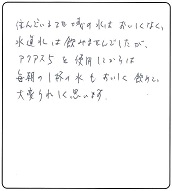 住んでいる工場の水はおいしくなく、
水道水は飲みませんでしたが、
アクアス5を使用してからは
毎朝の1杯の水もおいしく飲めて、
大変うれしく思います。